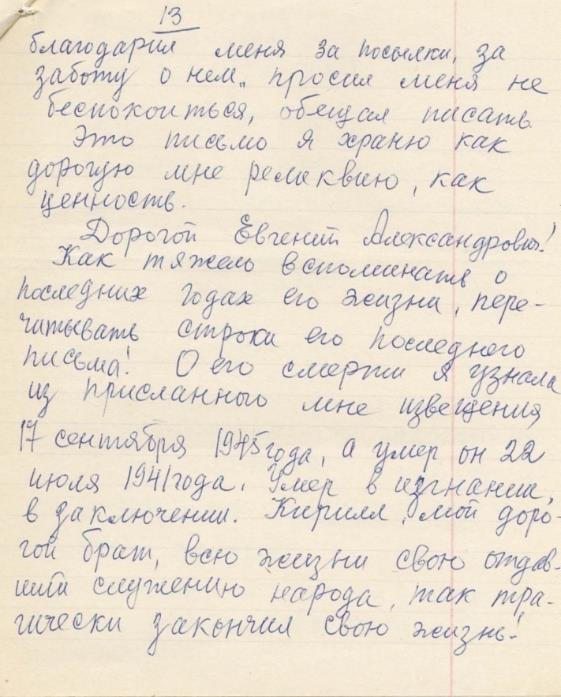 13
благодарил меня за посылки, за
заботу о нем, просил меня не
беспокоиться, обещал писать
Это письмо я храню как
дорогую мне реликвию, как
ценность.
Дорогой Евгений Александрович!
Как тяжело вспоминать о
последних годах его жизни, пере-
читывать строки его последнего
письма! О его смерти я узнала
из присланного мне извещения
17 сентября 1945 года, а умер он 22
июля 1941 года. Умер в изгнании,
в заключении. Кирилл, мой доро-
гой брат, всю жизни свою отдав-
ший служению народа, так тра-
гически закончил свою жизнь!